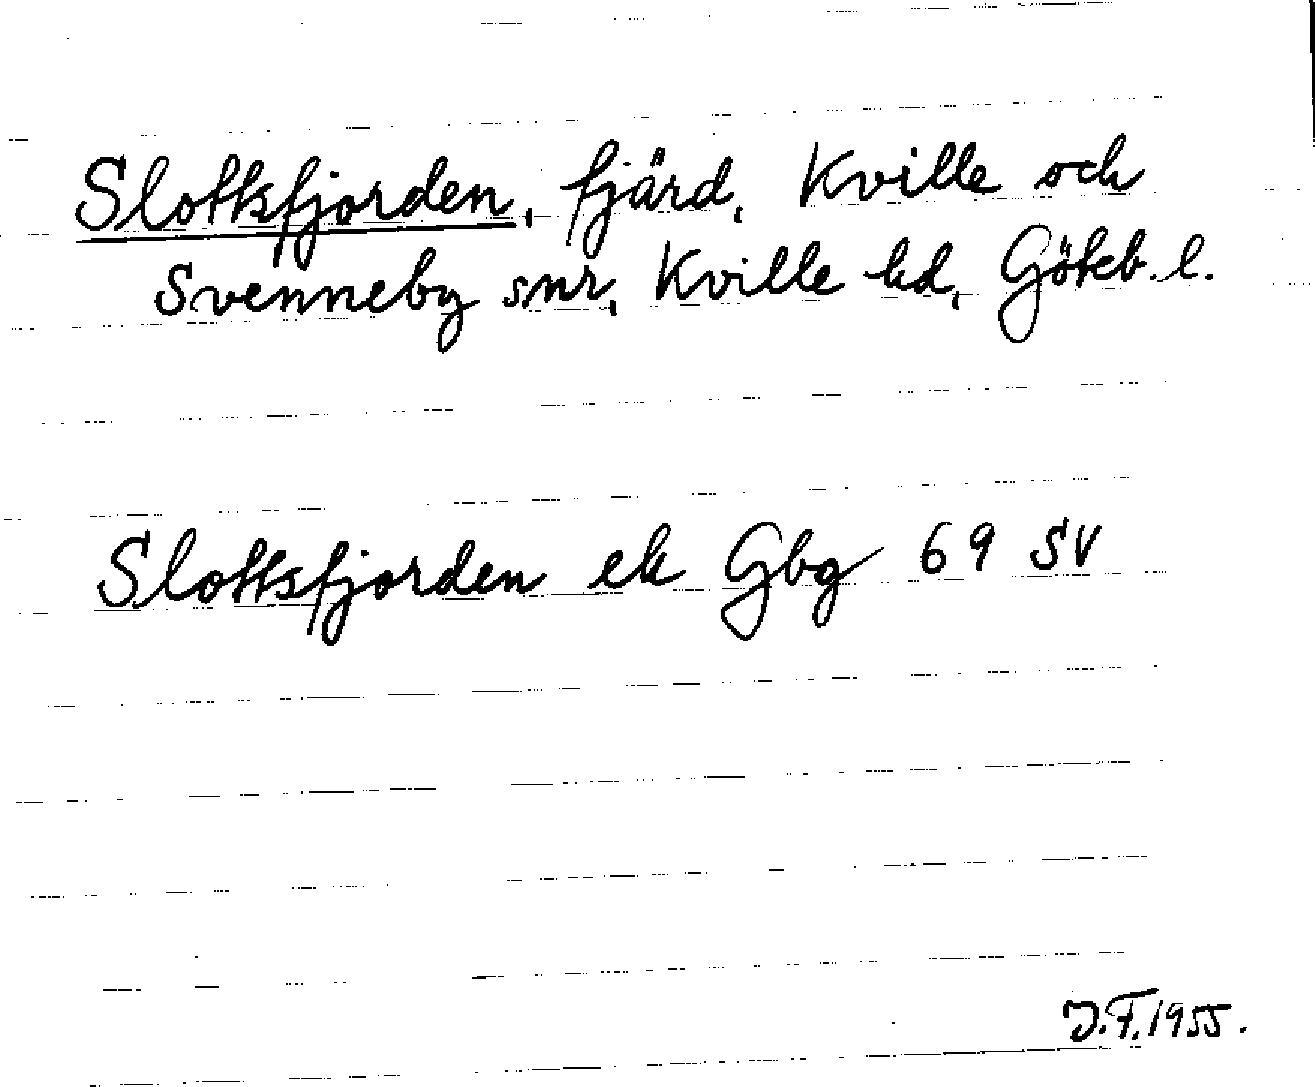 Slottsfjorden, fjärd, Kville och
Svenneby snr, Kville hd, Göteb. l.
Slottsfjorden ek Gbg 69 SV
J.F. 1955.